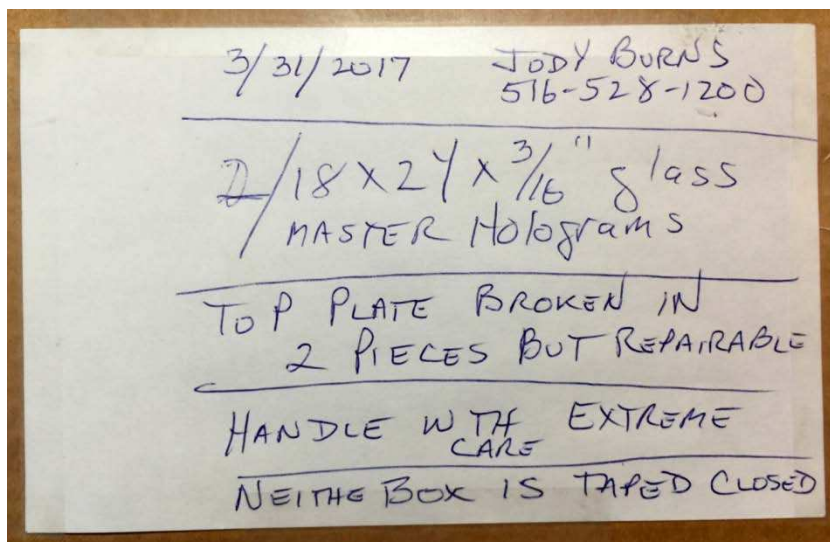 3/31/2017 JODY BURNS
516-528-1200
2/18 x 24 x 3/16" glass
MASTER Holograms
TOP PLATE BROKEN IN
2 PIECES BUT REPAIRABLE
HANDLE WTH EXTREME
CARE
NEITHE BOX IS TAPED CLOSED